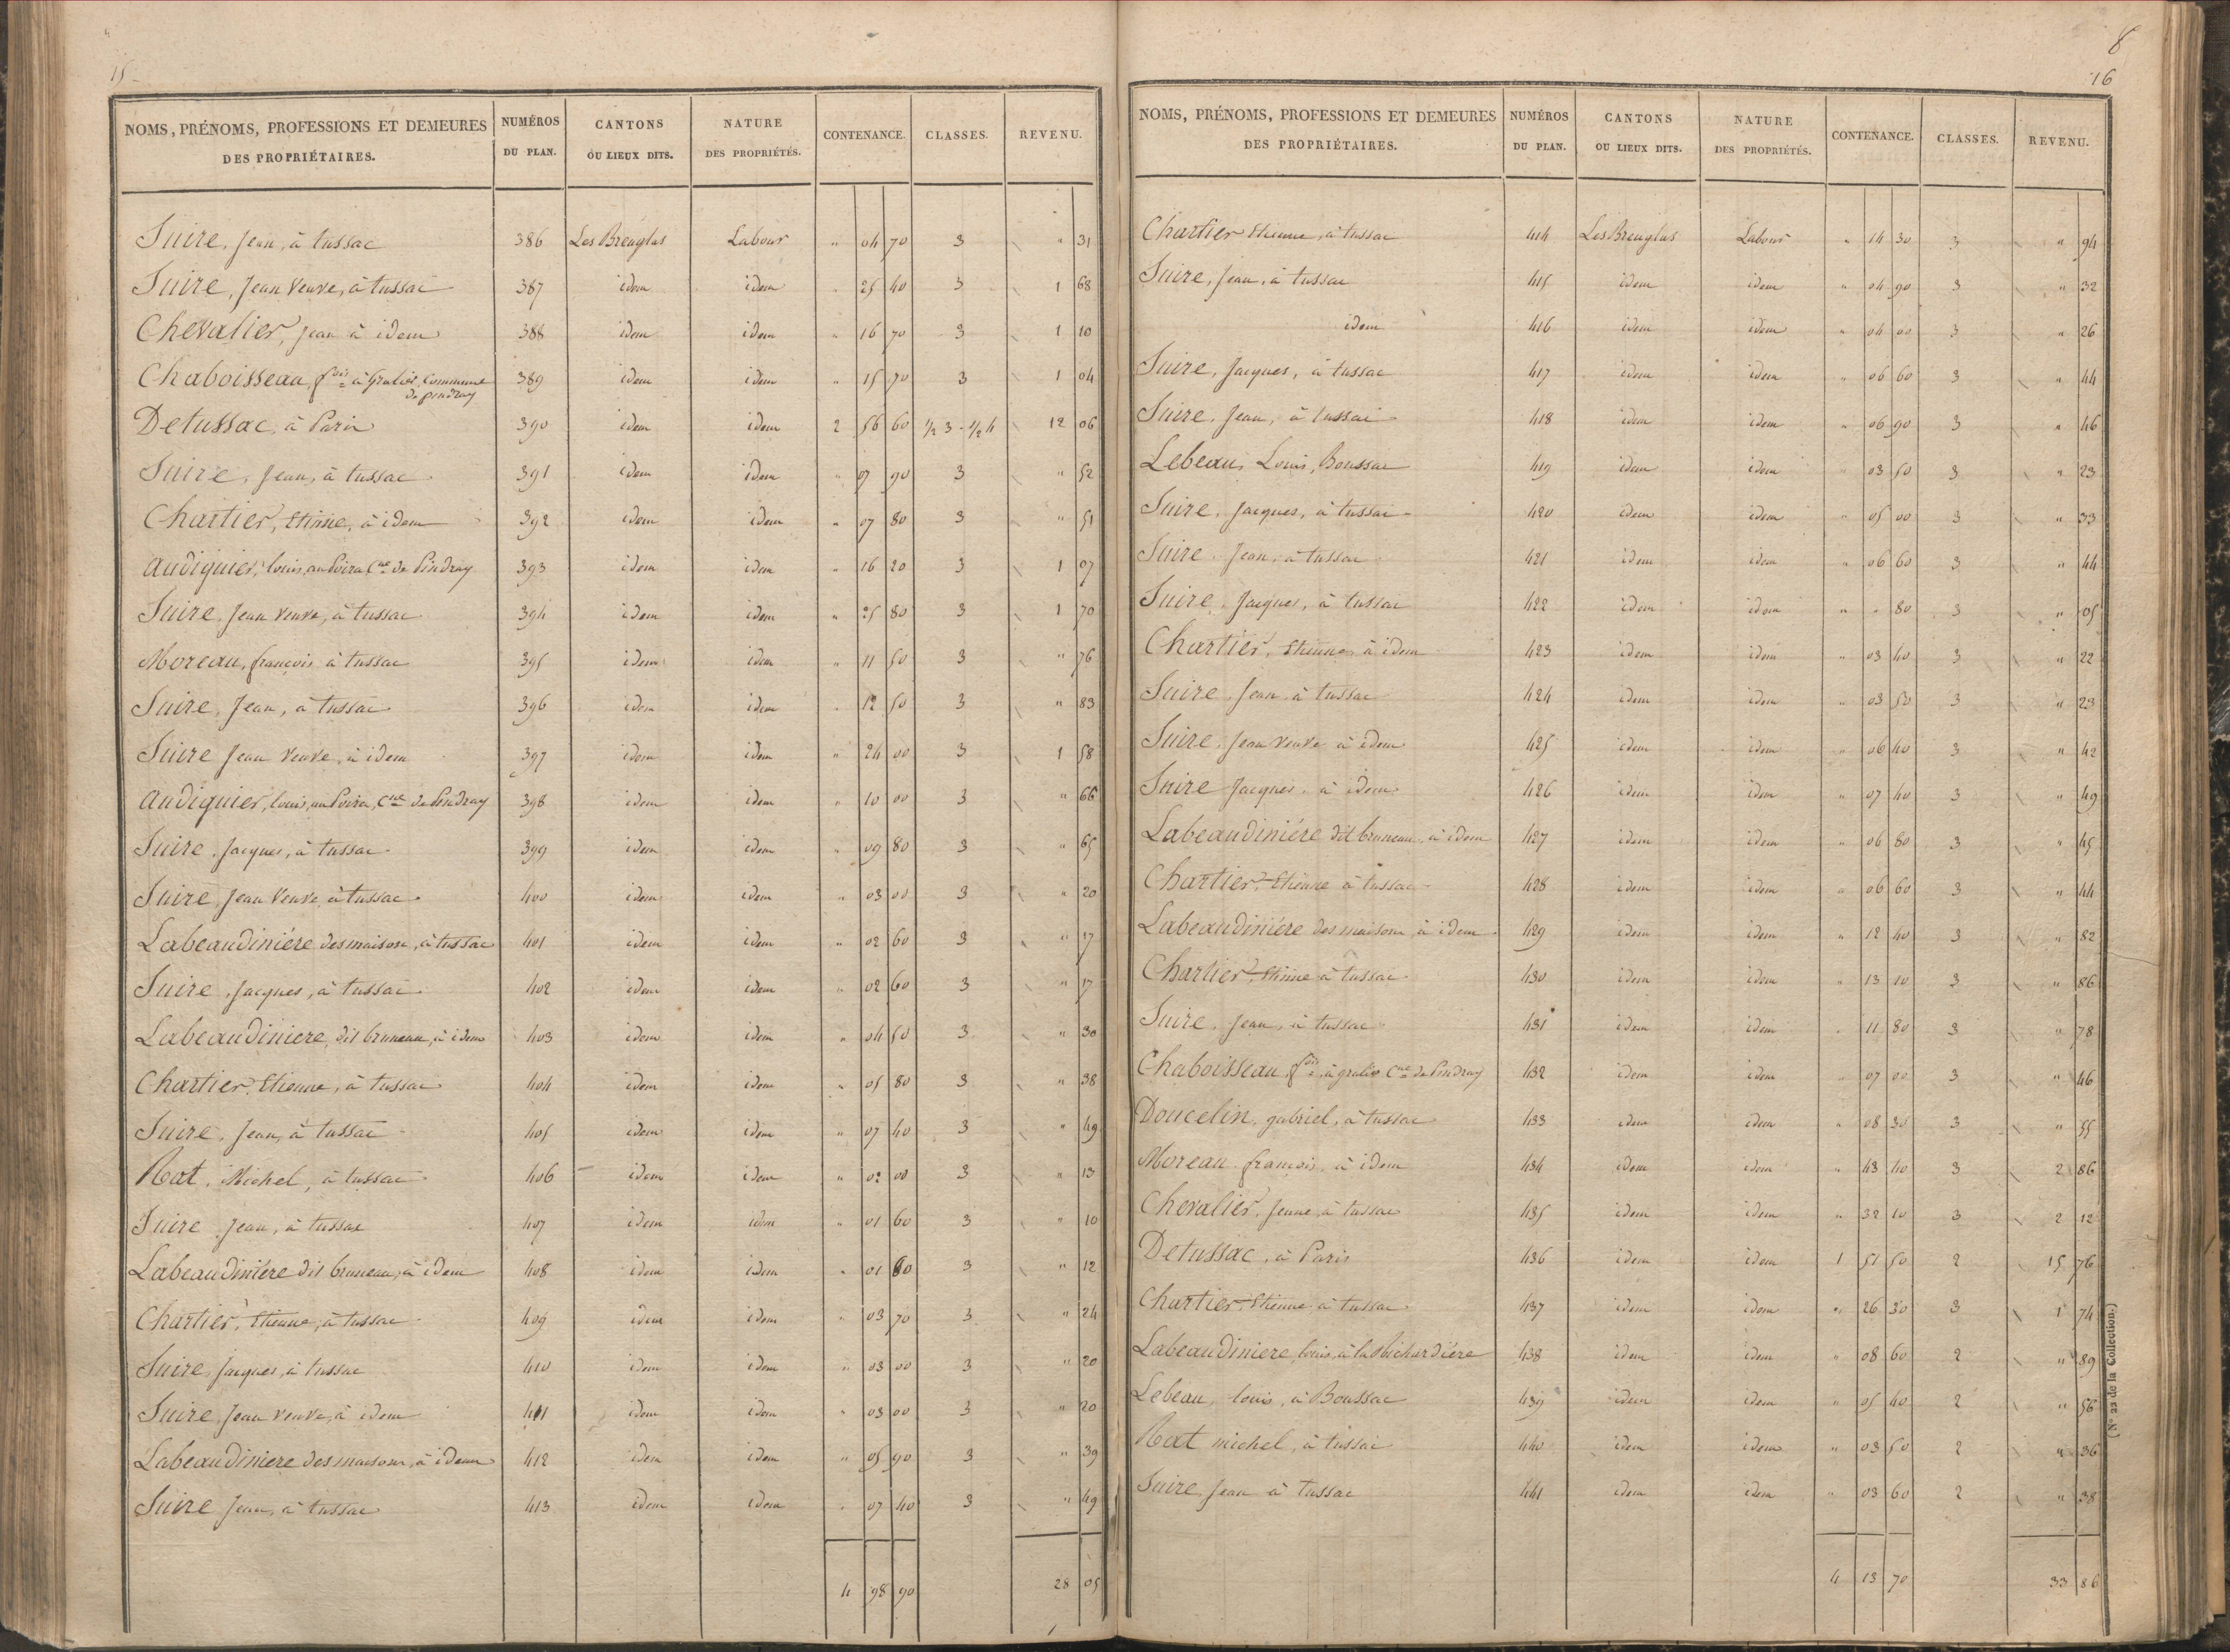 15
NOMS, PRÉNOMS, PROFESSIONS ET DEMEURES DES PROPRIÉTAIRES. NUMÉROS DU PLAN. CANTONS OU LIEUX DITS. NATURE DES PROPRIÉTÉS. CONTENANCE. CLASSES. REVENU.
Suire, Jean, à tussac 386 Les Breuglus Labour " 04 70 3 " 31
Suire, Jean Veuve, à tussac 387 idem idem " 25 40 3 1 68
Chevalier, Jean à idem 388 idem idem " 16 70 3 1 10
Chaboisseau, fois à Gralier, Commune de pindray 389 idem idem " 15 70 3 1 04
Detussac, à Paris 390 idem idem 2 56 60 1/2 3 - 1/2 4 12 06
Suire, Jean, à tussac 391 idem idem " 07 90 3 " 52
Chartier, Etienne, à idem 392 idem idem " 07 80 3 " 51
Audiguier, louis, au Poira Cne de Pindray 393 idem idem " 16 20 3 1 07
Suire, Jean Veuve, à tussac 394 idem idem " 25 80 3 1 70
Moreau, françois à tussac 395 idem idem " 11 50 3 " 76
Suire, Jean, à tussac 396 idem idem " 12 50 3 " 83
Suire Jean Veuve, à idem 397 idem idem " 24 00 3 1 58
Audiguier, louis, au Poira, Cne de Pindray 398 idem idem " 10 00 3 " 66
Suire, Jacques, à tussac 399 idem idem " 09 80 3 " 65
Suire, Jean Veuve, à tussac 400 idem idem " 03 00 3 " 20
Labeaudiniére desmaisons, à tussac 401 idem idem " 02 60 3 " 17
Suire, Jacques, à tussac 402 idem idem " 02 60 3 " 17
Labeaudiniere, dit bruneau, à idem 403 idem idem " 04 50 3 " 30
Chartier, Etienne, à tussac 404 idem idem " 05 80 3 " 38
Suire, Jean, à tussac 405 idem idem " 07 40 3 " 49
Rat, Michel, à tussac 406 idem idem " 02 00 3 " 13
Suire, Jean, à tussac 407 idem idem " 01 60 3 " 10
Labeaudiniére dit bruneau, à idem 408 idem idem " 01 80 3 " 12
Chartier, Etienne, à tussac 409 idem idem " 03 70 3 " 24
Suire, Jacques, à tussac 410 idem idem " 03 00 3 " 20
Suire, Jean Veuve, à idem 411 idem idem " 03 00 3 " 20
Labeaudiniere desmaisons, à idem 412 idem idem " 05 90 3 " 39
Suire, Jean, à tussac 413 idem idem " 07 40 3 " 49
4 98 90 28 05
8
16
NOMS, PRÉNOMS, PROFESSIONS ET DEMEURES DES PROPRIÉTAIRES. NUMÉROS DU PLAN. CANTONS OU LIEUX DITS. NATURE DES PROPRIÉTÉS. CONTENANCE. CLASSES. REVENU.
Chartier Etienne, à tussac 414 Les Breuglus Labour " 14 30 3 " 94
Suire, Jean, à tussac 415 idem idem " 04 90 3 " 32
idem 416 idem idem " 04 00 3 " 26
Suire, Jacques, à tussac 417 idem idem " 06 60 3 " 44
Suire, Jean, à tussac 418 idem idem " 06 90 3 " 46
Lebeau, Louis, Boussac 419 idem idem " 03 50 3 " 23
Suire, Jacques, à tussac 420 idem idem " 05 00 3 " 33
Suire, Jean, à tussac 421 idem idem " 06 60 3 " 44
Suire, Jacques, à tussac 422 idem idem " " 80 3 " 05
Chartier, Etienne, à idem 423 idem idem " 03 40 3 " 22
Suire, Jean à tussac 424 idem idem " 03 50 3 " 23
Suire, Jean Veuve à idem 425 idem idem " 06 40 3 " 42
Suire Jacques, à idem 426 idem idem " 07 40 3 " 49
Labeaudiniére dit bruneau, à idem 427 idem idem " 06 80 3 " 45
Chartier, Etienne à tussac 428 idem idem " 06 60 3 " 44
Labeaudiniére desmaisons à idem 429 idem idem " 12 40 3 " 82
Chartier, Etienne à tussac 430 idem idem " 13 10 3 " 86
Suire, Jean, à tussac 431 idem idem " 11 80 3 " 78
Chaboisseau, fois, à gralier Cne de Pindray 432 idem idem " 07 00 3 " 46
Doucelin, gabriel, à tussac 433 idem idem " 08 30 3 " 55
Moreau, françois, à idem 434 idem idem " 43 40 3 2 86
Chevalier, Jeune, à tussac 435 idem idem " 32 10 3 2 12
Detussac, à Paris 436 idem idem 1 51 50 2 15 76
Chartier, Etienne, à tussac 437 idem idem " 26 30 3 1 74
Labeaudiniere, louis, à la Richardiére 438 idem idem " 08 60 2 " 89
Lebeau, louis, à Boussac 439 idem idem " 05 40 2 " 56
Rat michel, à tussac 440 idem idem " 03 50 2 " 36
Suire, Jean à tussac 441 idem idem " 03 60 2 " 38
4 13 70 33 86
(N° 22 de la Collection.)